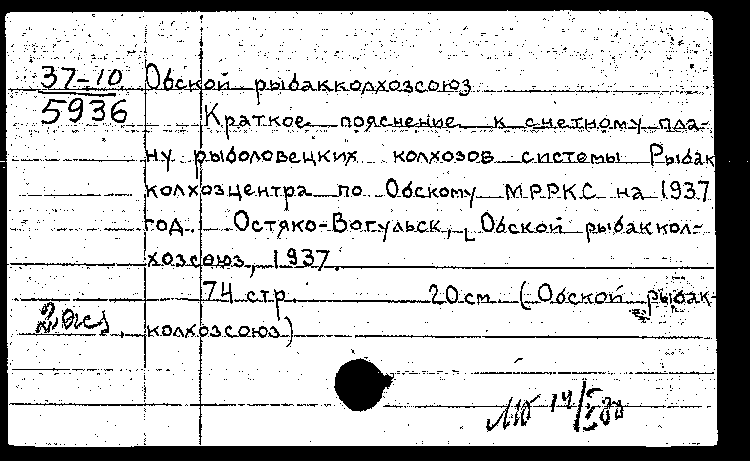 37-10 Обской рыбакколхозсоюз
5936 Краткое пояснение к сметному пла-
ну рыболовецких колхозов системы Рыбак
колхозцентра по Обскому МРРКС на 1937
год. Остяко-Вогульск, [Обской рыбаккол-
хозсоюз, 1937.
74 стр. 20см (Обской рыбак-
2 экз. колхозсоюз)